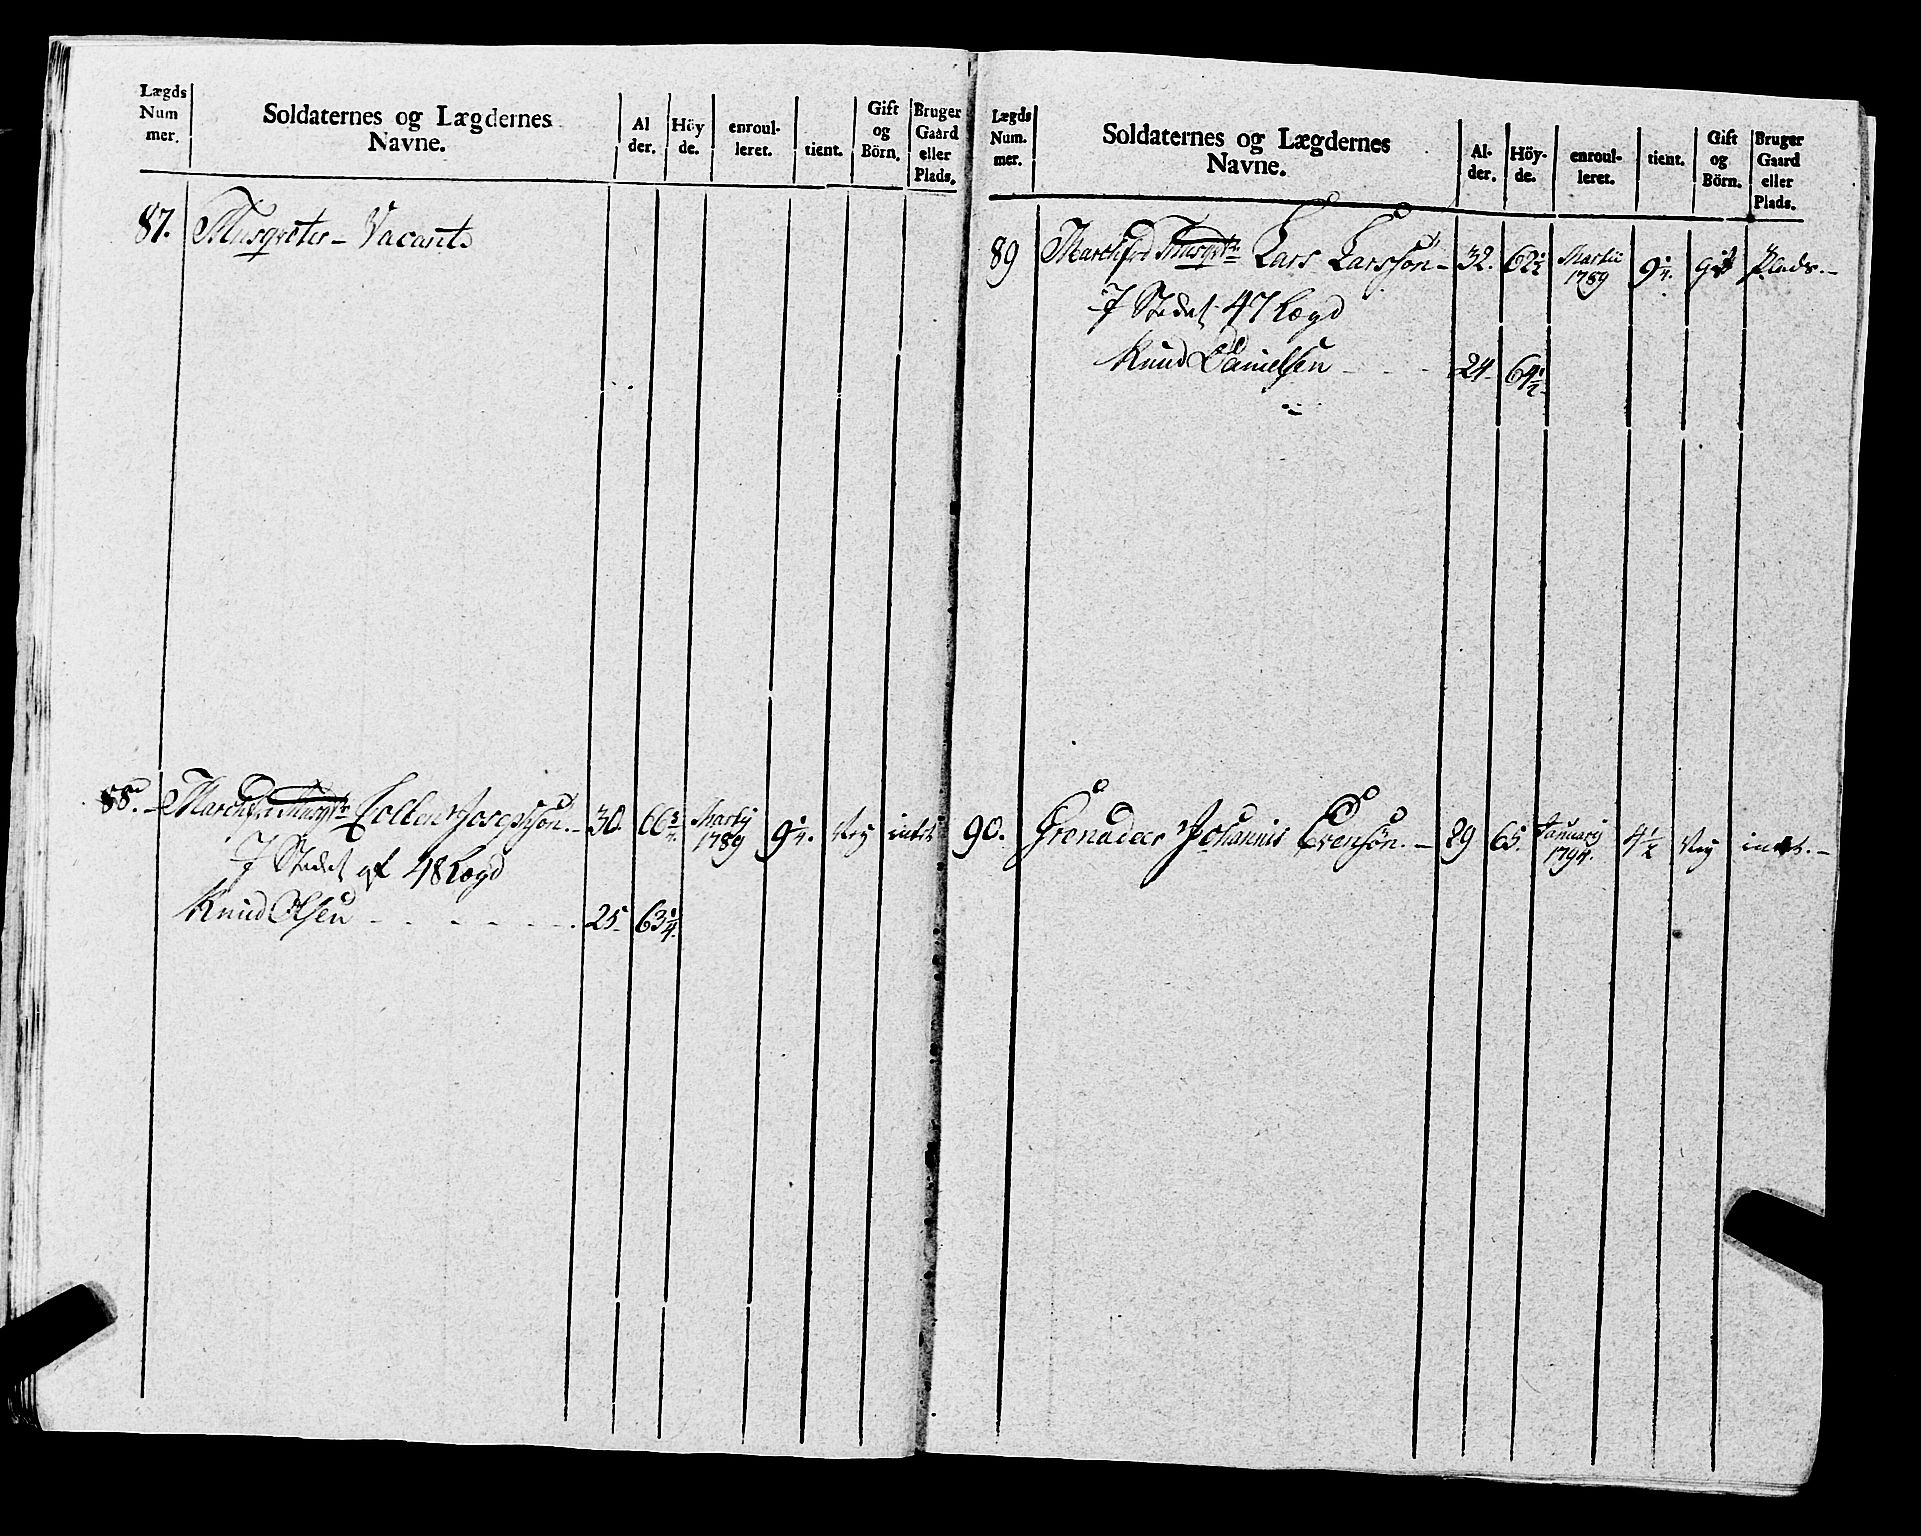 Lægds
Num
mer.
Soldaternes og Lægdernes
Navne.
Al
der.
Höy
de.
enroul-
leret.
tient.
Gift
og
Börn.
Bruger
Gaard
eller
Plads.
87. Musqveter - Vacant
88. Tollev Josephsøn. 30. 66 3/4 Martij 1789 9 1/4. Ney intet
I Stedet af 48 Lægd
Knud Olsen - - - - - - 25. 63 1/4.
Lægds
Num.
mer.
Soldaternes og Lægdernes
Navne.
Al-
der.
Höy-
de.
enroul-
leret.
tient.
Gift
og
Börn.
Bruger
Gaard
eller
Plads.
89 Lars Larssøn - 32. 62 1/2 Martii 1789 9 1/4. Gift Plads. -
I Stedet 47 Lægd
Knud Danielsen - - - 24. 64 1/2
90. Grenadeer Johannis Evensøn. - 29 65. January 1794. 4 1/2 Ney intet. -